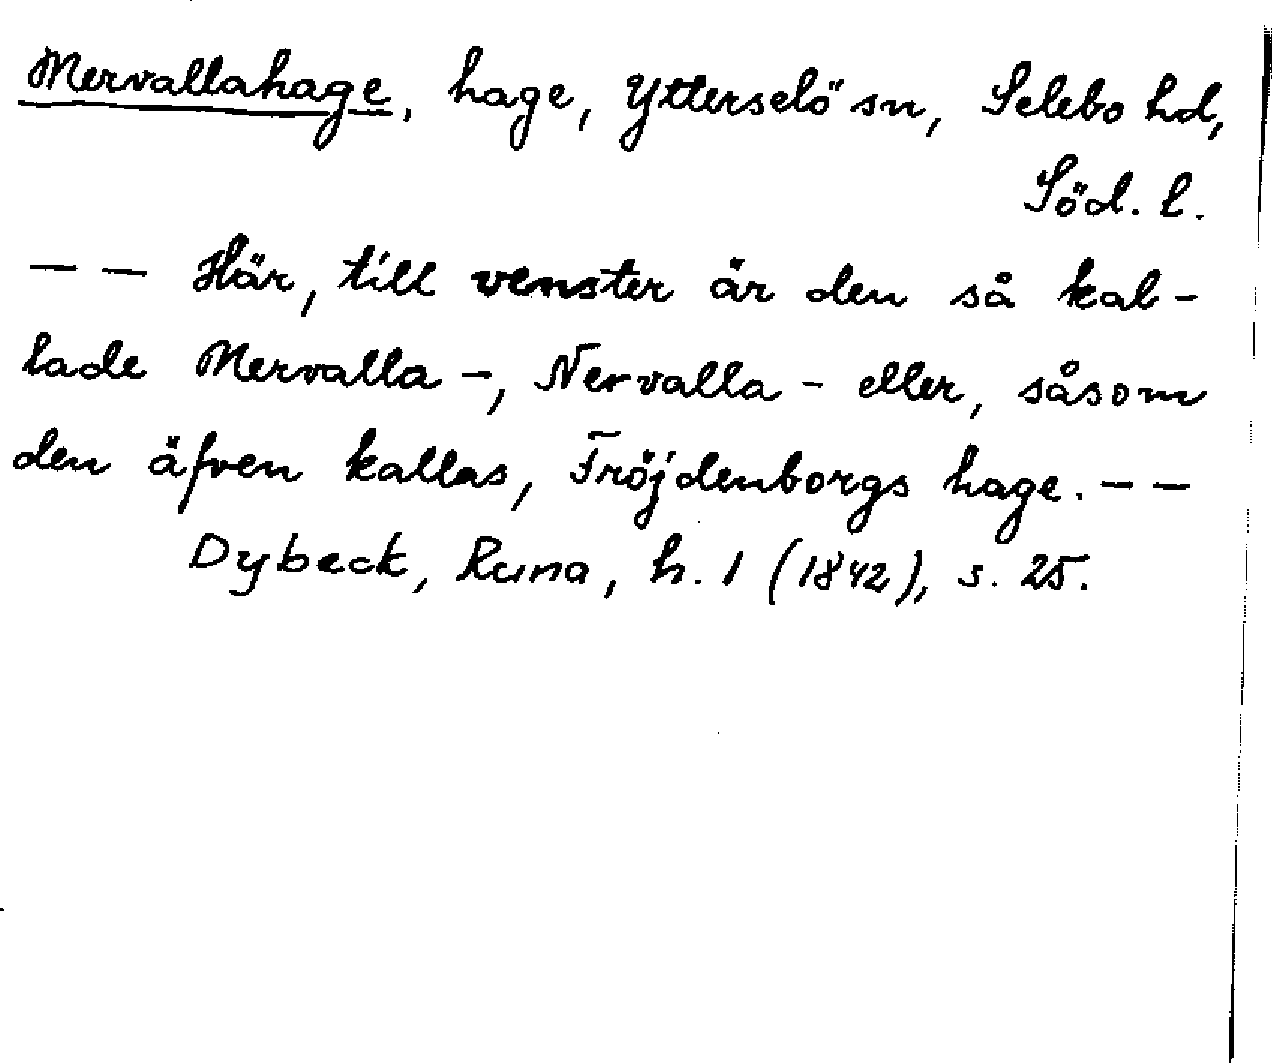 Mervallahage, hage, Ytterselö sn, Selebo hd,
Söd. l.
— — Här, till venster är den så kal-
lade Mervalla-, Nervalla- eller, såsom
den äfven kallas, Fröjdenborgs hage. — —
Dybeck, Runa, h. 1 (1842), s. 25.